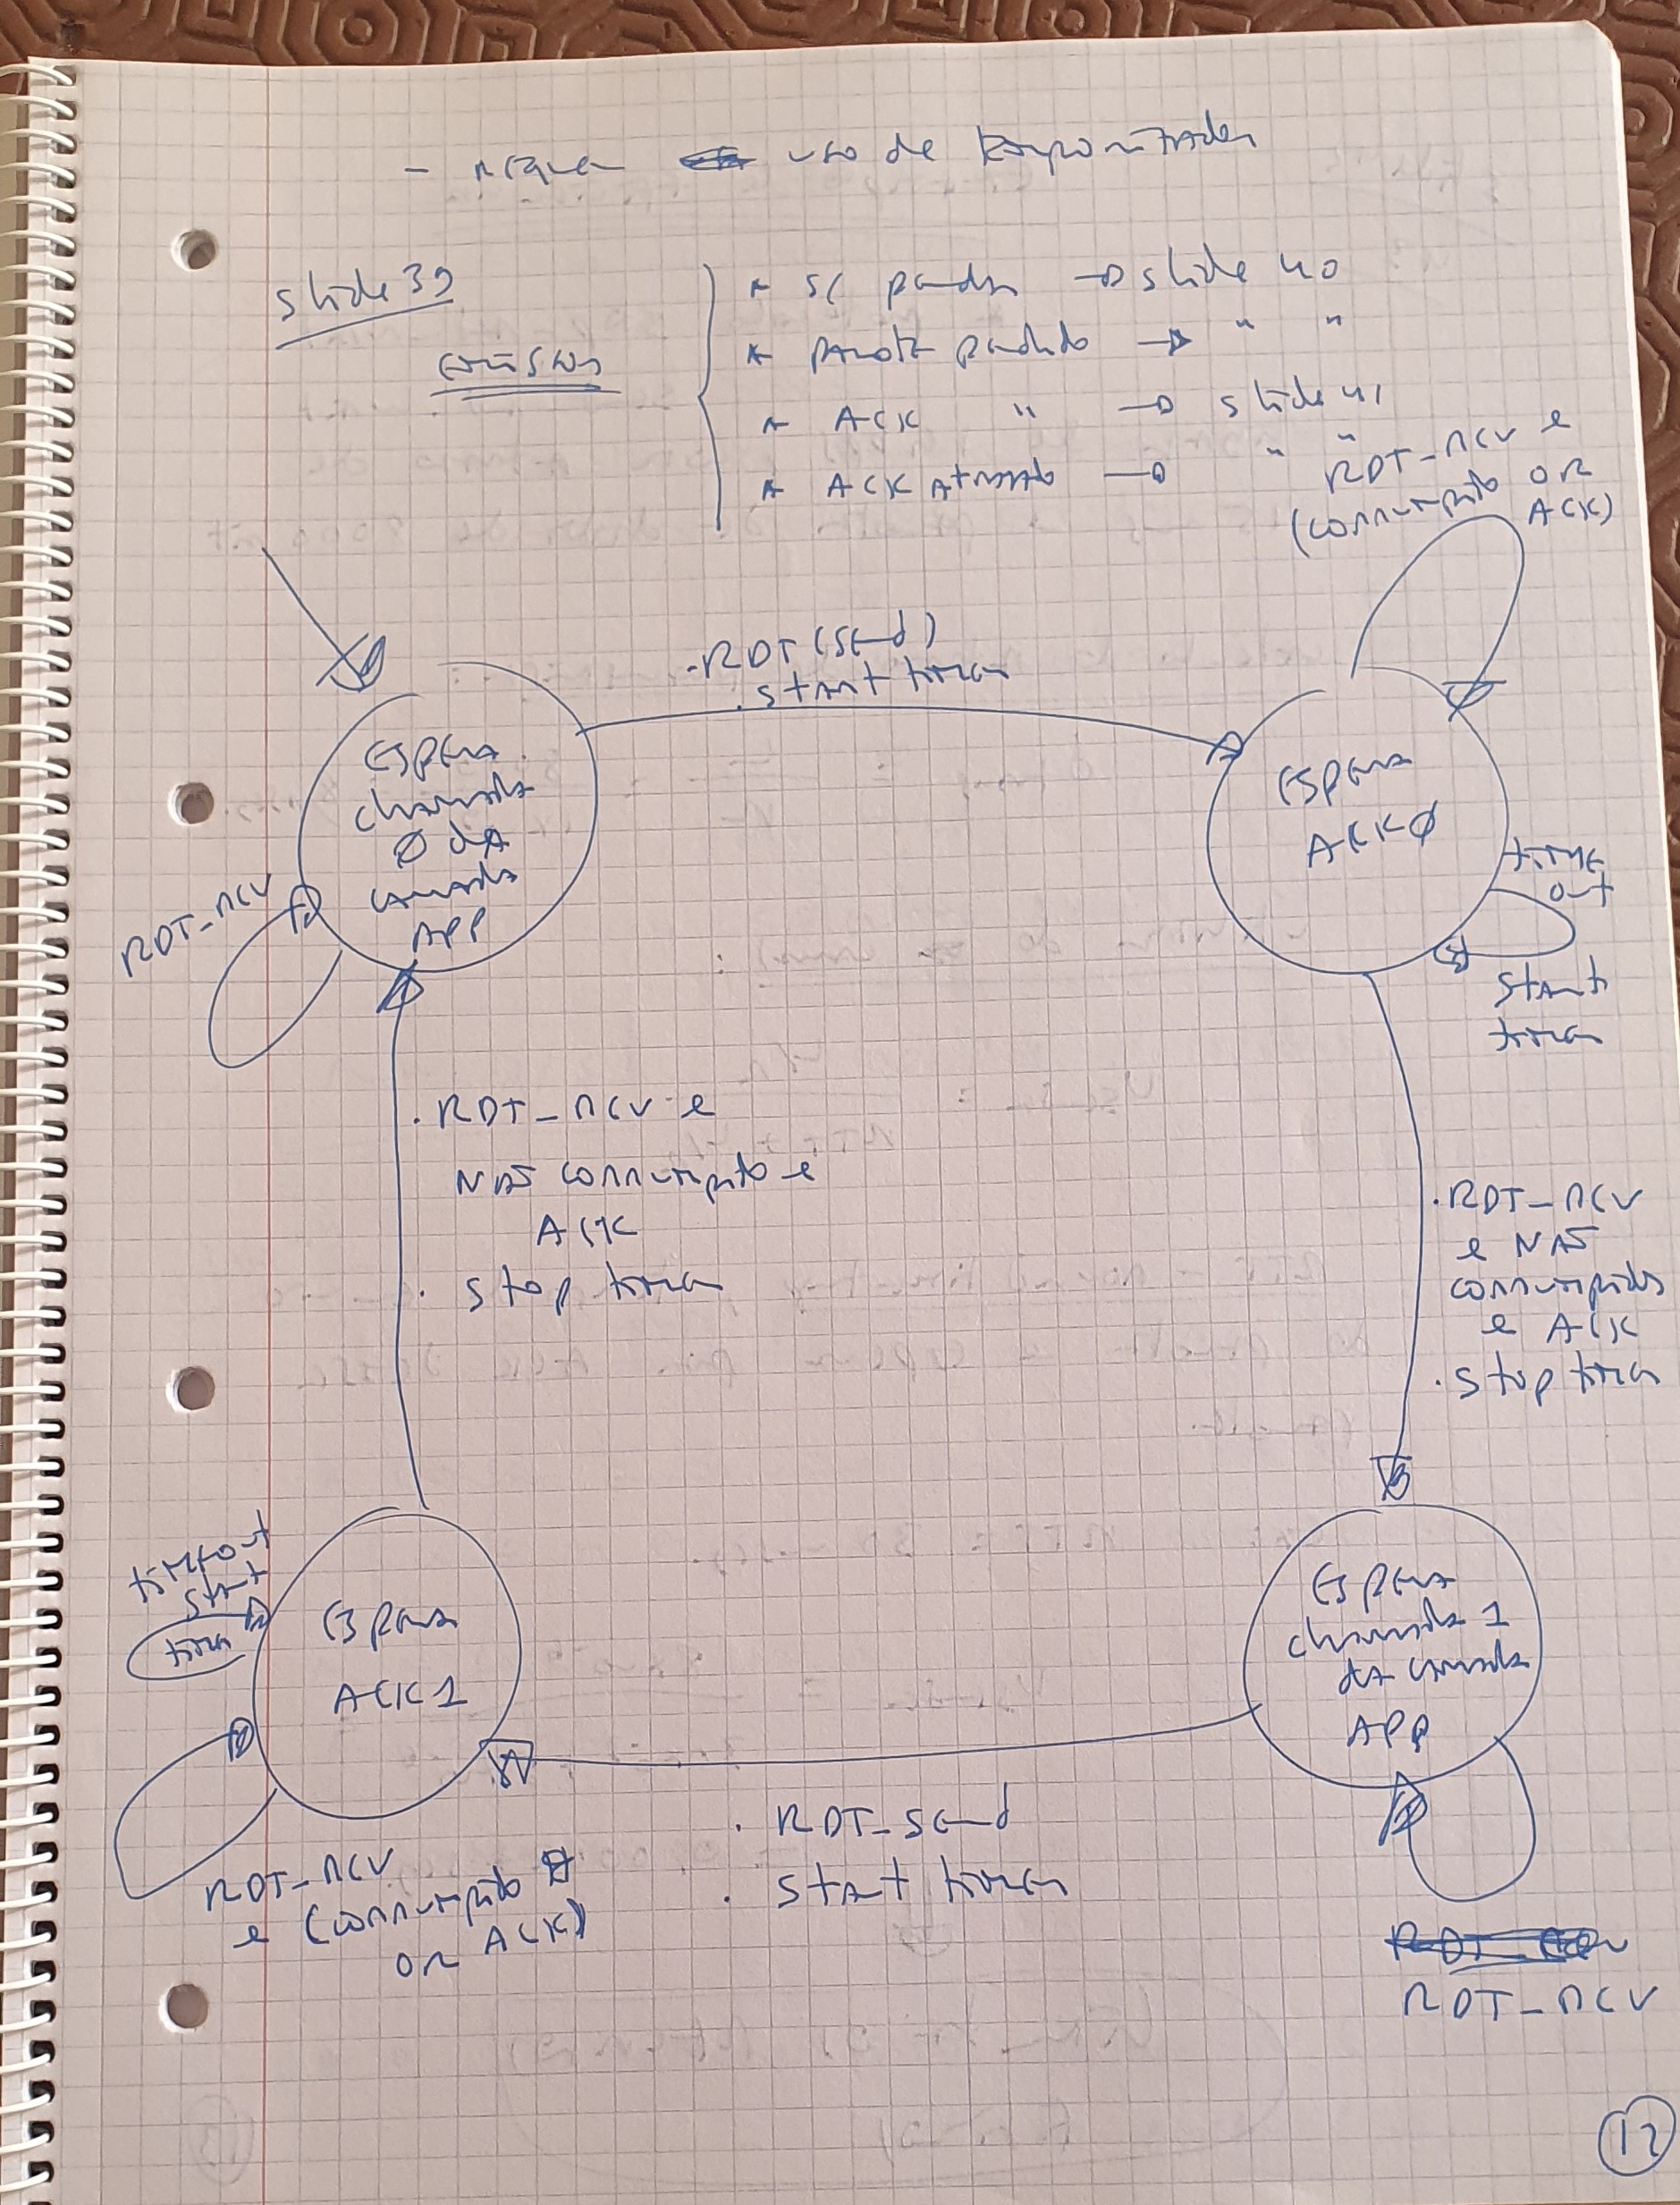 - requer uso de temporizador
slide 39
emissor
* s/ perda → slide 40
* pacote perdido → " "
* ACK " → slide 41
* ACK atrasado → " "
RDT_rcv e
(corrompido or
ACK)
. RDT (send)
. start timer
Espera
chamada
Ø dA
camada
APP
RDT_rcv
Espera
ACK Ø
time
out
start
timer
. RDT_rcv e
NÃO corrompido e
ACK
. stop timer
. RDT_rcv
e NÃO
corrompido
e ACK
. stop timer
timeout
start
timer
Espera
ACK 1
Espera
chamada 1
da camada
APP
RDT_rcv
e (corrompido
or ACK)
. RDT_send
. start timer
RDT_rcv
12